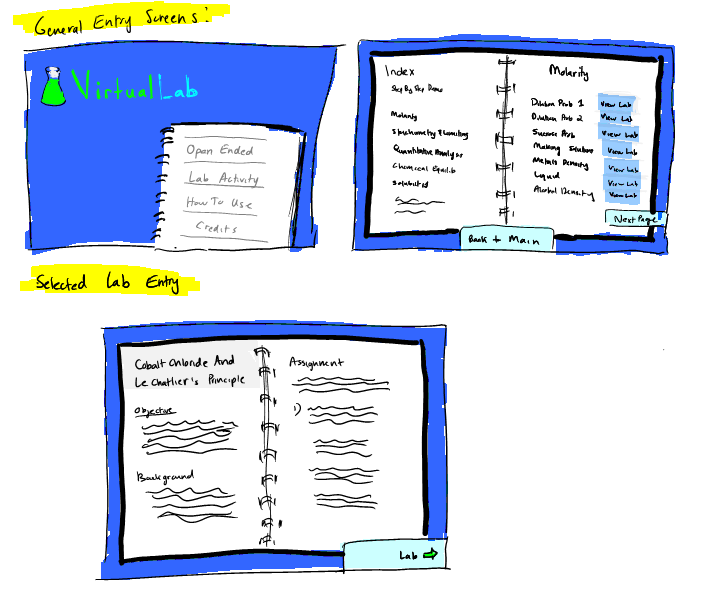 General Entry Screens:
Virtual Lab
Open Ended
Lab Activity
How To Use
Credits
Index
Step By Step Demo
Molarity
Stoichiometry & Limiting
Quantitative Analysis
Chemical Equilib
Solubilities
Molarity
Dilution Prob 1 View Lab
Dilution Prob 2 View Lab
Sucrose Prob View Lab
Making Solution View Lab
Metals Density View Lab
Liquid View Lab
Alcohol Density View Lab
Next Page
Back to Main
Selected Lab Entry
Cobalt Chloride And
Le Chatlier's Principle
Objective
Background
Assignment
1)
Lab